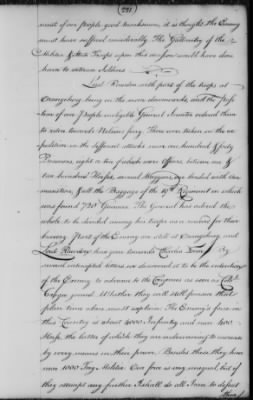 (221)
most of our people good marksmen, it is thought the Enemy
must have suffered considerably. The Gallantry of the
Militia & State Troops upon this occasion would have done
honor to veteran Soldiers
Lord Rawdon with part of the troops at
Orangeburg being on the move downwards, and the position
of our People ineligible General Sumter ordered them
to retire towards Nelsons ferry. There were taken on the expedition
in the different attacks near one hundred & forty
Prisoners, eight or ten of which were Officers, between one &
two hundred Horses, several Waggons, one loaded with ammunition,
& all the Baggage of the 19th Regiment in which
were found 720 Guineas. The General has ordered the
whole to be divided among his troops as a reward for their
bravery. Part of the Enemy are still at Orangeburg and
Lord Rawdon has gone towards Charles Town. By
several intercepted letters we discovered it to be the intention
of the Enemy to advance to the Congaree as soon as Colo.
joined. Whether they will still pursue that
plan time alone must explain. The Enemy's force in
this Country is about 4000 Infantry and near 400
Horse, the latter of which they are endeavoring to increase
by every means in their power. Besides these they have
near 1000 Tory Militia. Our force is very unequal, but if
they attempt any further I shall do all I can to defeat
them